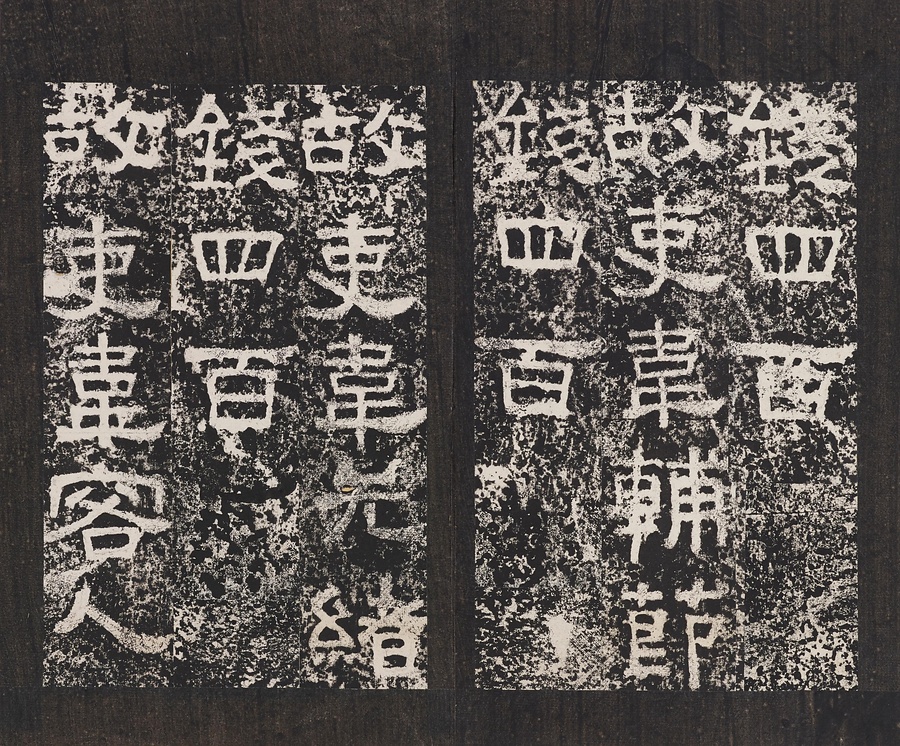 錢四百
故吏韋輔節
錢四百
故吏韋元緒
錢四百
故吏韋客人